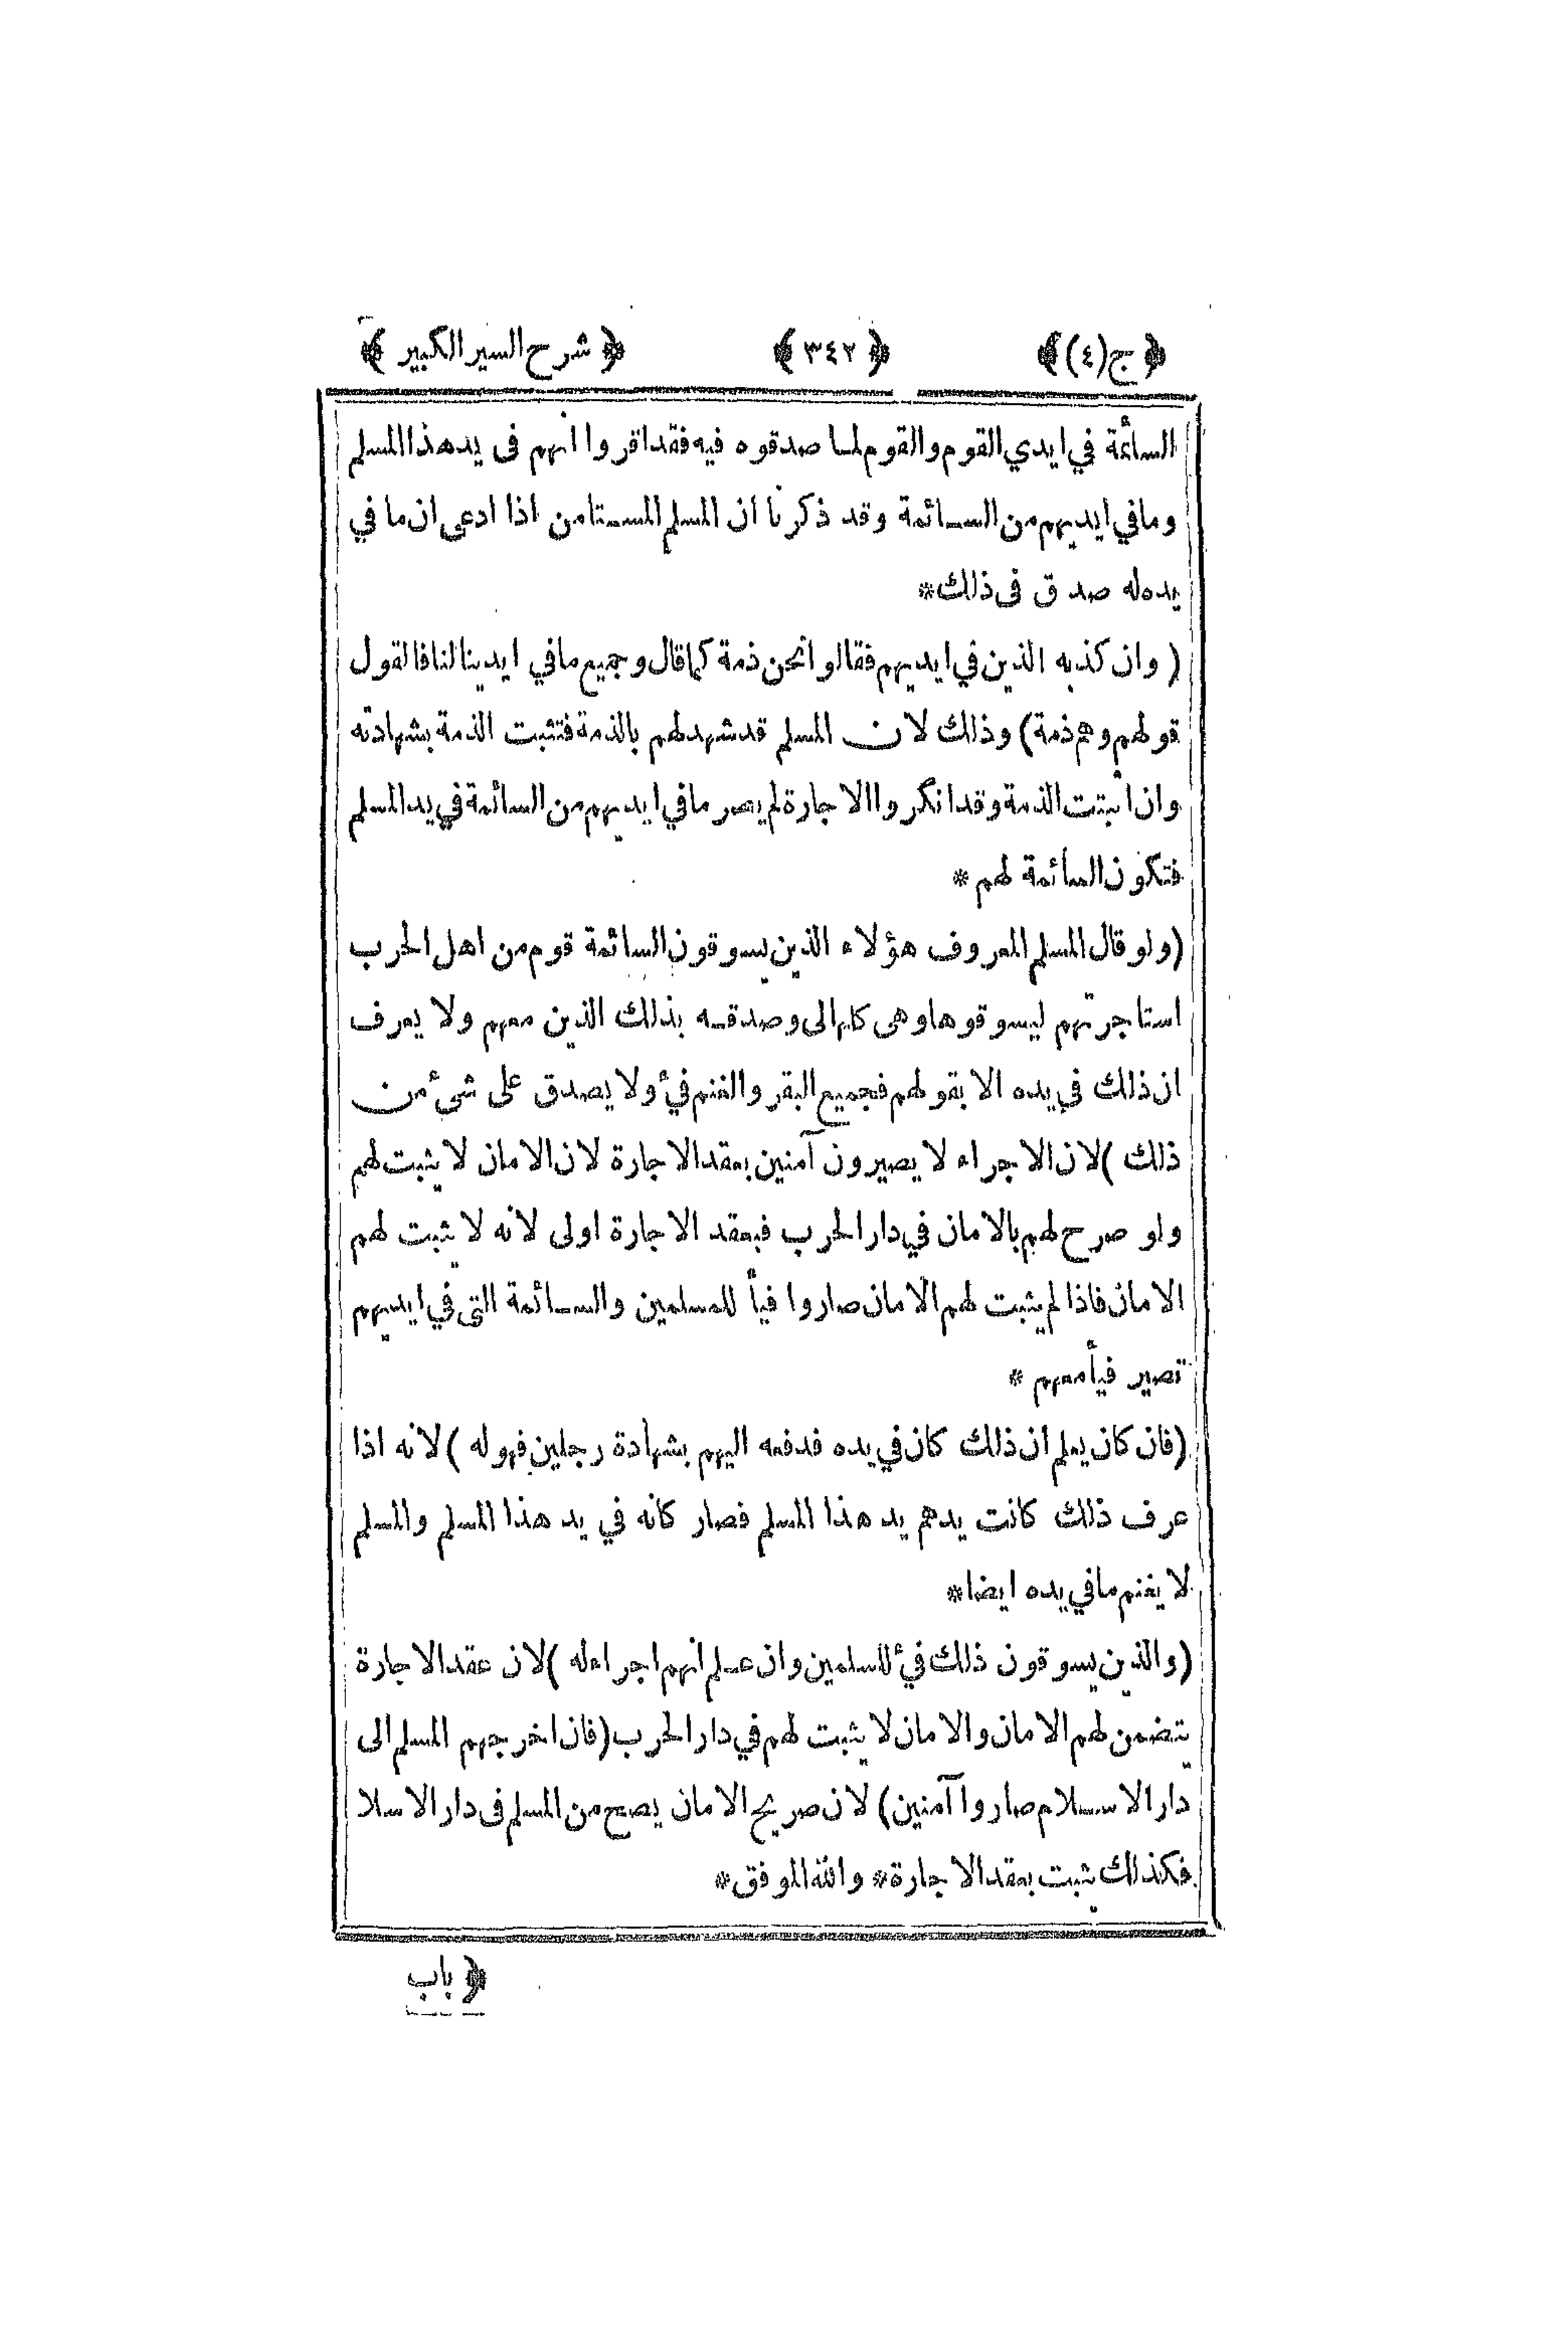 ﴿ ج(٤) ﴾ ﴿ ٣٤٢ ﴾ ﴿ شرح السير الكبير ﴾
السائمة في ايدي القوم والقوم لما صدقوه فيه فقد اقروا انهم في يد هذا المسلم
وما في ايديهم من السائمة وقد ذكرنا ان المسلم المستامن اذا ادعى ان ما في
يده له صدق فى ذلك*
( وان كذبه الذين في ايديهم فقالوا نحن ذمة كما قال وجميع ما في ايدينا لنا فالقول
قولهم وهم ذمة) وذلك لان المسلم قد شهد لهم بالذمة فتثبت الذمة بشهادته
وان اثبتت الذمة وقد انكروا الاجارة لم يصر ما في ايديهم من السائمة في يد المسلم
فتكون السائمة لهم *
(ولو قال المسلم المعروف هؤلاء الذين يسوقون السائمة قوم من اهل الحرب
استاجرتهم ليسوقوها وهى كلها لى وصدقه بذلك الذين معهم ولا يعرف
ان ذلك في يده الا بقولهم فجميع البقر والغنم فئ ولا يصدق على شئ من
ذلك ) لان الاجراء لا يصيرون آمنين بعقد الاجارة لان الامان لا يثبت لهم
ولو صرح لهم بالامان في دار الحرب فبعقد الاجارة اولى لانه لا يثبت لهم
الامان فاذا لم يثبت لهم الامان صاروا فيأ للمسلمين والسائمة التى في ايديهم
تصير فيأ معهم *
(فان كان يعلم ان ذلك كان في يده فدفعه اليهم بشهادة رجلين فهوله ) لانه اذا
عرف ذلك كانت يدهم يد هذا المسلم فصار كانه في يد هذا المسلم والمسلم
لا يغنم ما في يده ايضا*
(والذين يسوقون ذلك فئ للسلمين وان علم انهم اجراء له ) لان عقد الاجارة
يتضمن لهم الامان والامان لا يثبت لهم في دار الحرب (فان اخرجهم المسلم الى
دار الاسلام صاروا آمنين) لان صريح الامان يصح من المسلم فى دار الاسلا
فكذلك يثبت بعقد الاجارة* والله الموفق*
﴿ باب